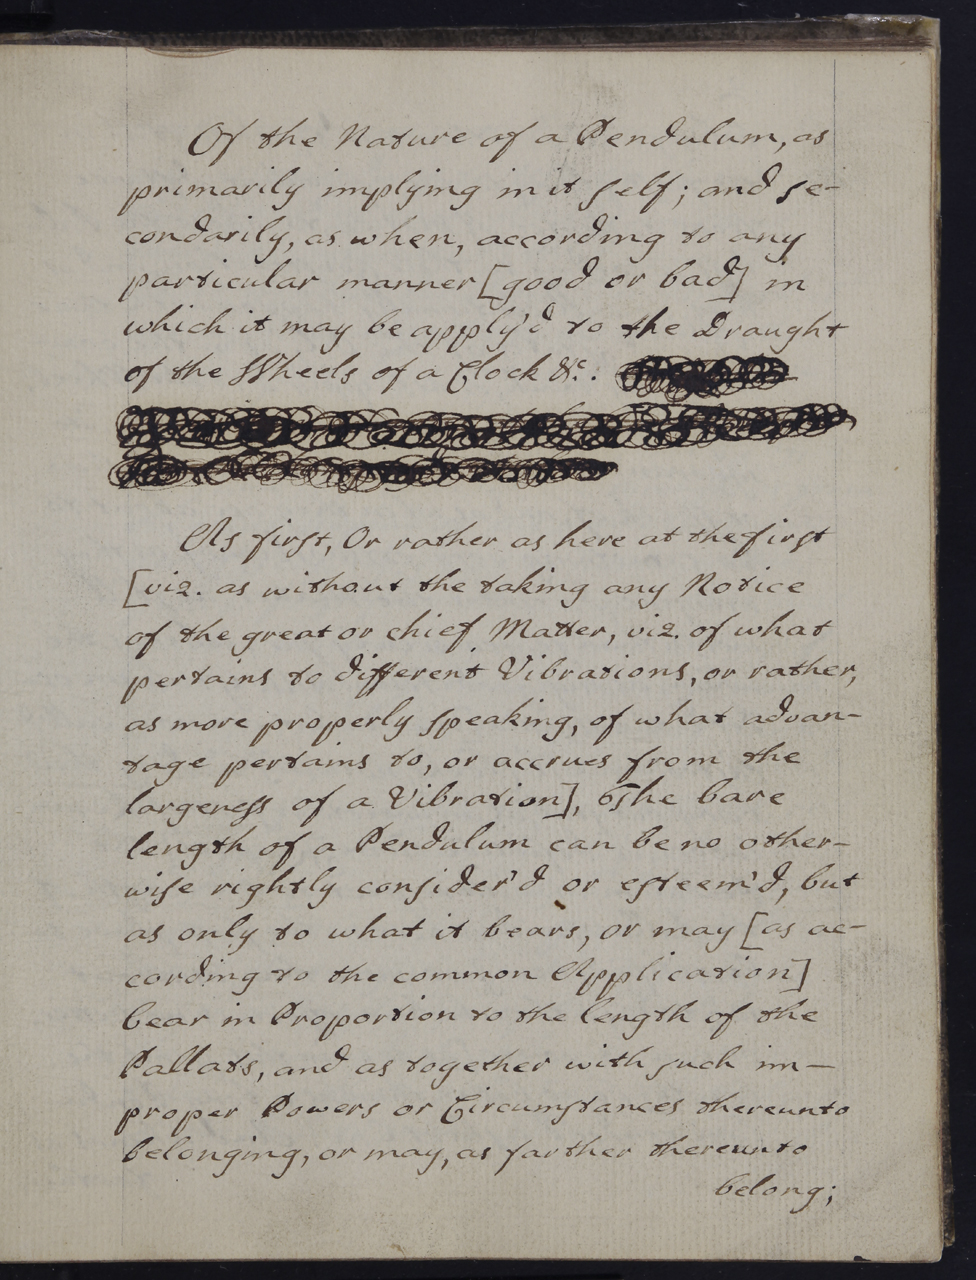 Of the Nature of a Pendulum, as
primarily implying in it self; and se-
condarily, as when, according to any
particular manner [good or bad] in
which it may be apply'd to the Draught
of the Wheels of a Clock &c.
As first, Or rather as here at the first
[viz. as without the taking any Notice
of the great or chief Matter, viz. of what
pertains to different Vibrations, or rather,
as more properly speaking, of what advan-
tage pertains to, or accrues from the
largeness of a Vibration], The bare
length of a Pendulum can be no other-
wise rightly consider'd or esteem'd, but
as only to what it bears, or may [as ac-
cording to the common Application]
bear in Proportion to the length of the
Pallats, and as together with such im-
proper Powers or Circumstances thereunto
belonging, or may, as farther thereunto
belong;